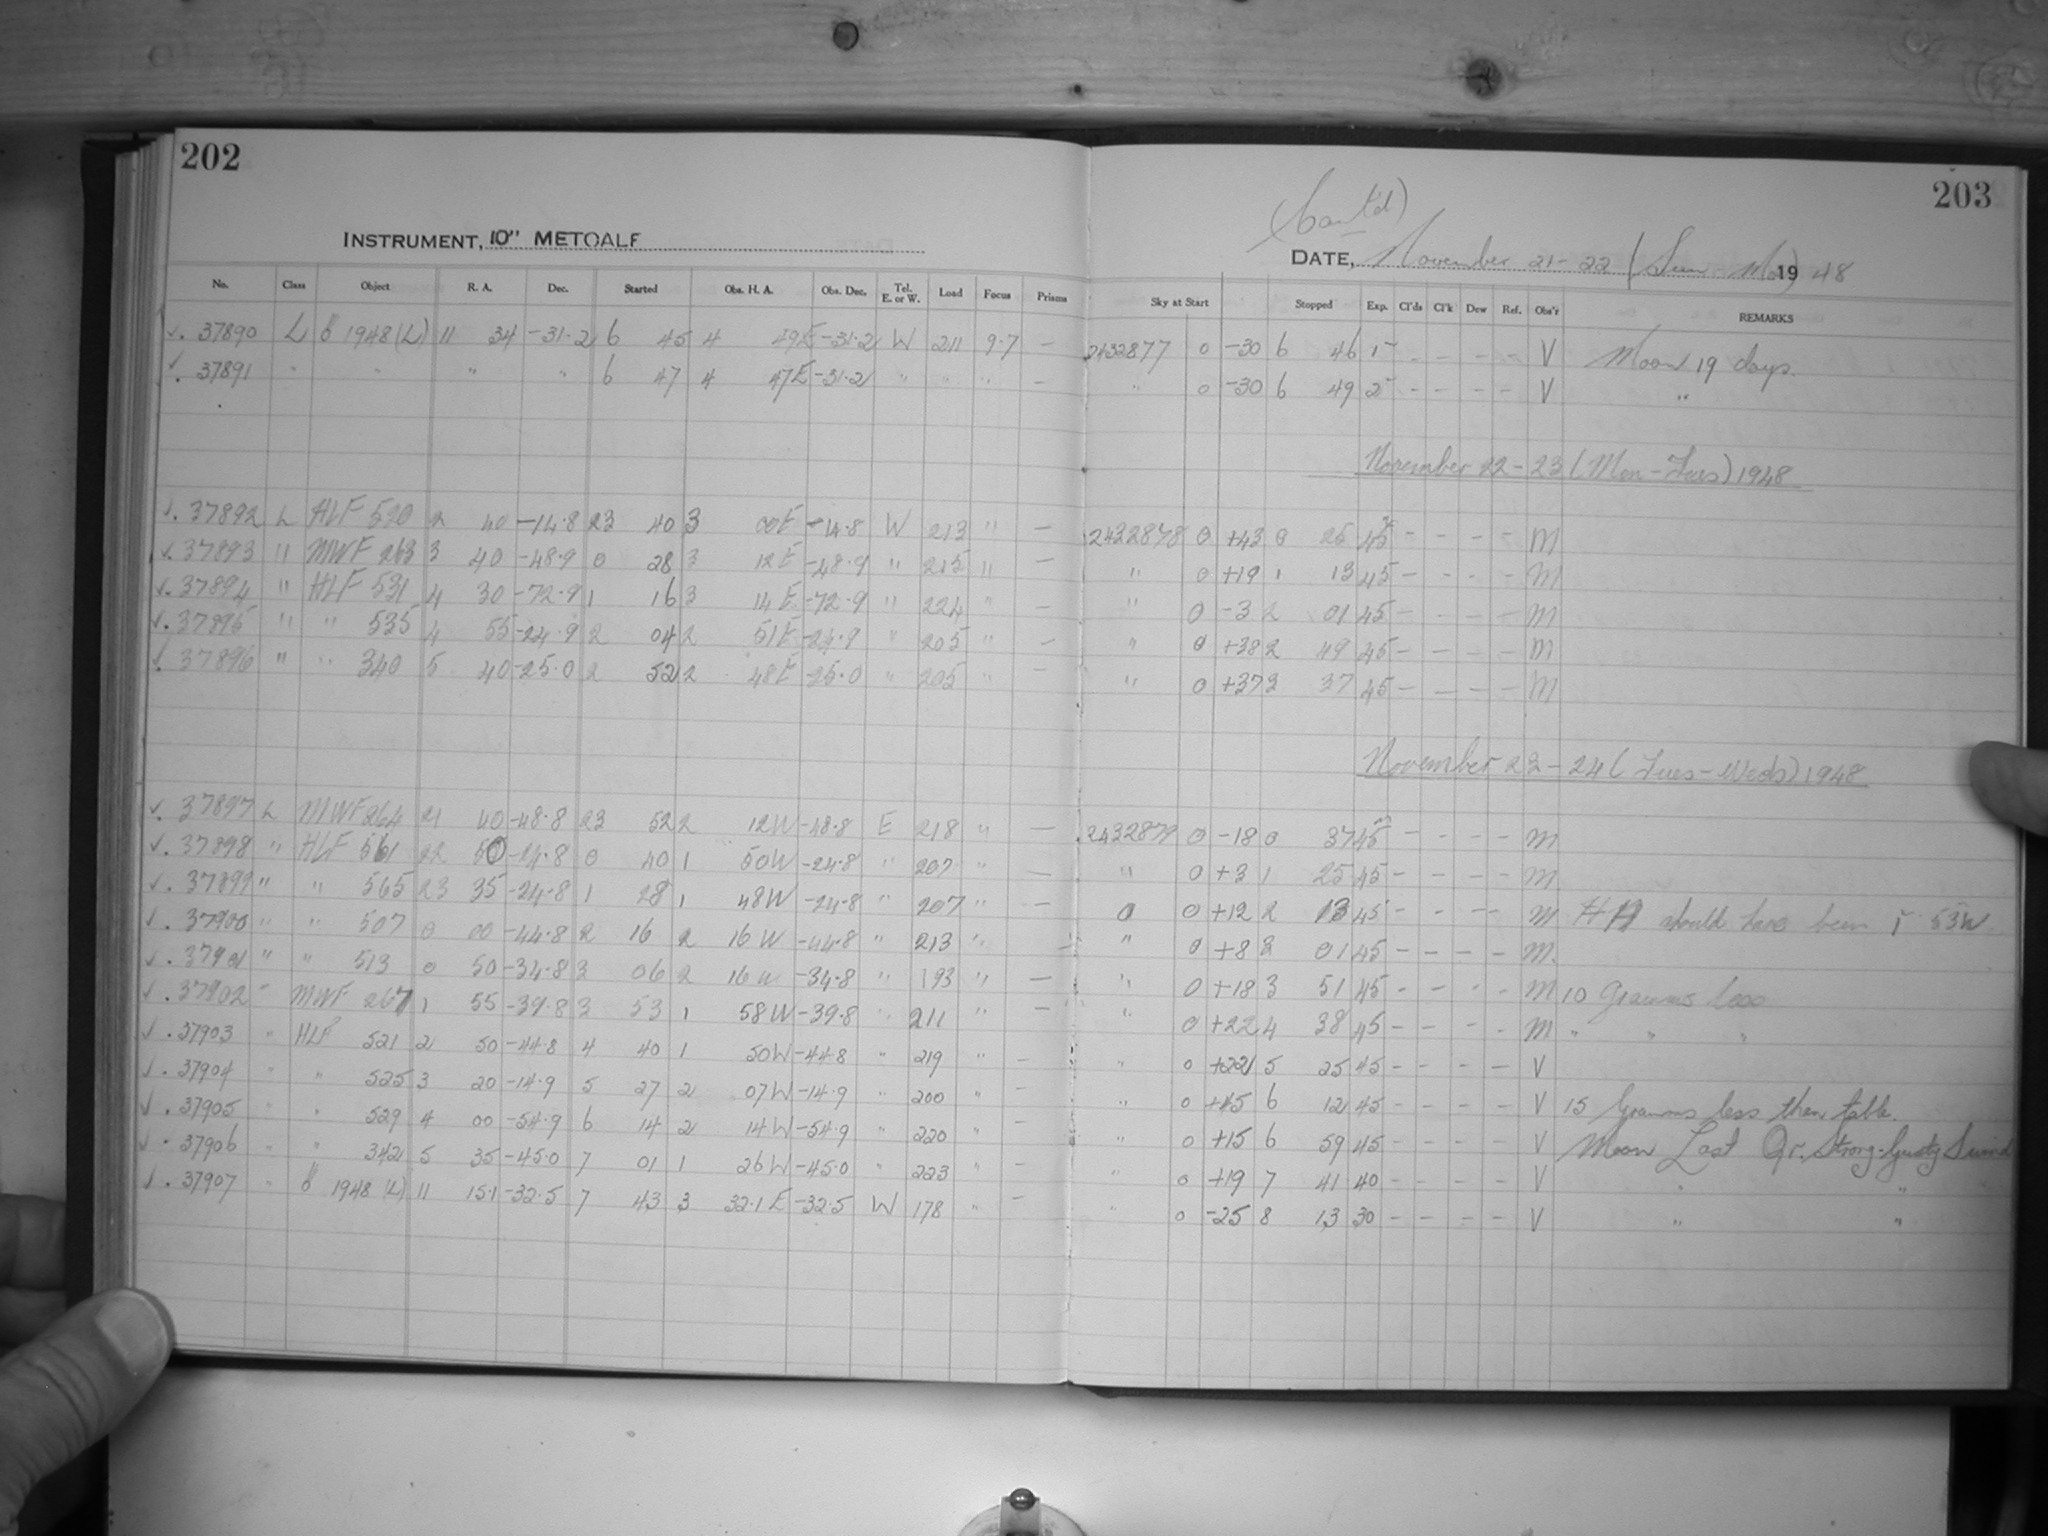 202
203
(Cont'd)
INSTRUMENT, 10" METCALF
DATE, November 21-22 (Sun-Mo) 1948
No. Class Object R. A. Dec. Started Obs. H. A. Obs. Dec. Tel. E. or W. Load Focus Prisms Sky at Start Stopped Exp. Cl'ds Cl'k Dew Ref. Obs'r REMARKS
✓. 37890 L 1948 (L) 11 34 -31.2 6 45 4 49E -31.2 W 211 9.7 — 2432877 0 -30 6 46 1 - - - - V Moon 19 days.
✓. 37891 " " " " 6 47 4 47E -31.2 " " " — " 0 -30 6 49 2 - - - - V "
November 22-23 (Mon-Tues) 1948
✓. 37892 L HLF 520 2 40 -14.8 23 40 3 00E -14.8 W 213 " — 2432878 0 +43 0 25 45 - - - - M
✓. 37893 " MWF 263 3 40 -48.9 0 28 3 12E -48.9 " 215 " — " 0 +19 1 13 45 - - - - M
✓. 37894 " HLF 531 4 30 -72.9 1 16 3 14E -72.9 " 224 " — " 0 -3 2 01 45 - - - - M
✓. 37895 " " 535 4 55 -24.9 2 04 2 51E -24.9 " 205 " — " 0 +38 2 49 45 - - - - M
✓. 37896 " " 340 5 40 -25.0 2 52 2 48E -25.0 " 205 " — " 0 +37 3 37 45 - - - - M
November 23-24 (Tues-Weds) 1948
✓. 37897 L MWF 264 21 40 -48.8 23 52 2 12W -48.8 E 218 " — 2432879 0 -18 0 37 45 - - - - M
✓. 37898 " HLF 561 22 50 -24.8 0 40 1 50W -24.8 " 207 " — " 0 +3 1 25 45 - - - - M
✓. 37899 " " 565 23 35 -24.8 1 28 1 48W -24.8 " 207 " — " 0 +12 2 13 45 - - - - M HA should have been 1 53W
✓. 37900 " " 507 0 00 -44.8 2 16 2 16W -44.8 " 213 " — " 0 +8 3 01 45 - - - - M
✓. 37901 " " 513 0 50 -34.8 3 06 2 16W -34.8 " 193 " — " 0 +18 3 51 45 - - - - M 10 Grammes less
✓. 37902 " MWF 267 1 55 -39.8 3 53 1 58W -39.8 " 211 " — " 0 +22 4 38 45 - - - - M " " "
✓. 37903 " HLF 521 2 50 -44.8 4 40 1 50W -44.8 " 219 " — " 0 +22 5 25 45 - - - - V
✓. 37904 " " 525 3 20 -14.9 5 27 2 07W -14.9 " 200 " — " 0 +45 6 12 45 - - - - V 15 Gramms less then table.
✓. 37905 " " 529 4 00 -54.9 6 14 2 14W -54.9 " 220 " — " 0 +15 6 59 45 - - - - V Moon Last Qr. Strong-Gusty S wind
✓. 37906 " " 342 5 35 -45.0 7 01 1 26W -45.0 " 223 " — " 0 +19 7 41 40 - - - - V " "
✓. 37907 " 1948 (L) 11 15.1 -32.5 7 43 3 32.1E -32.5 W 178 " — " 0 -25 8 13 30 - - - - V " "